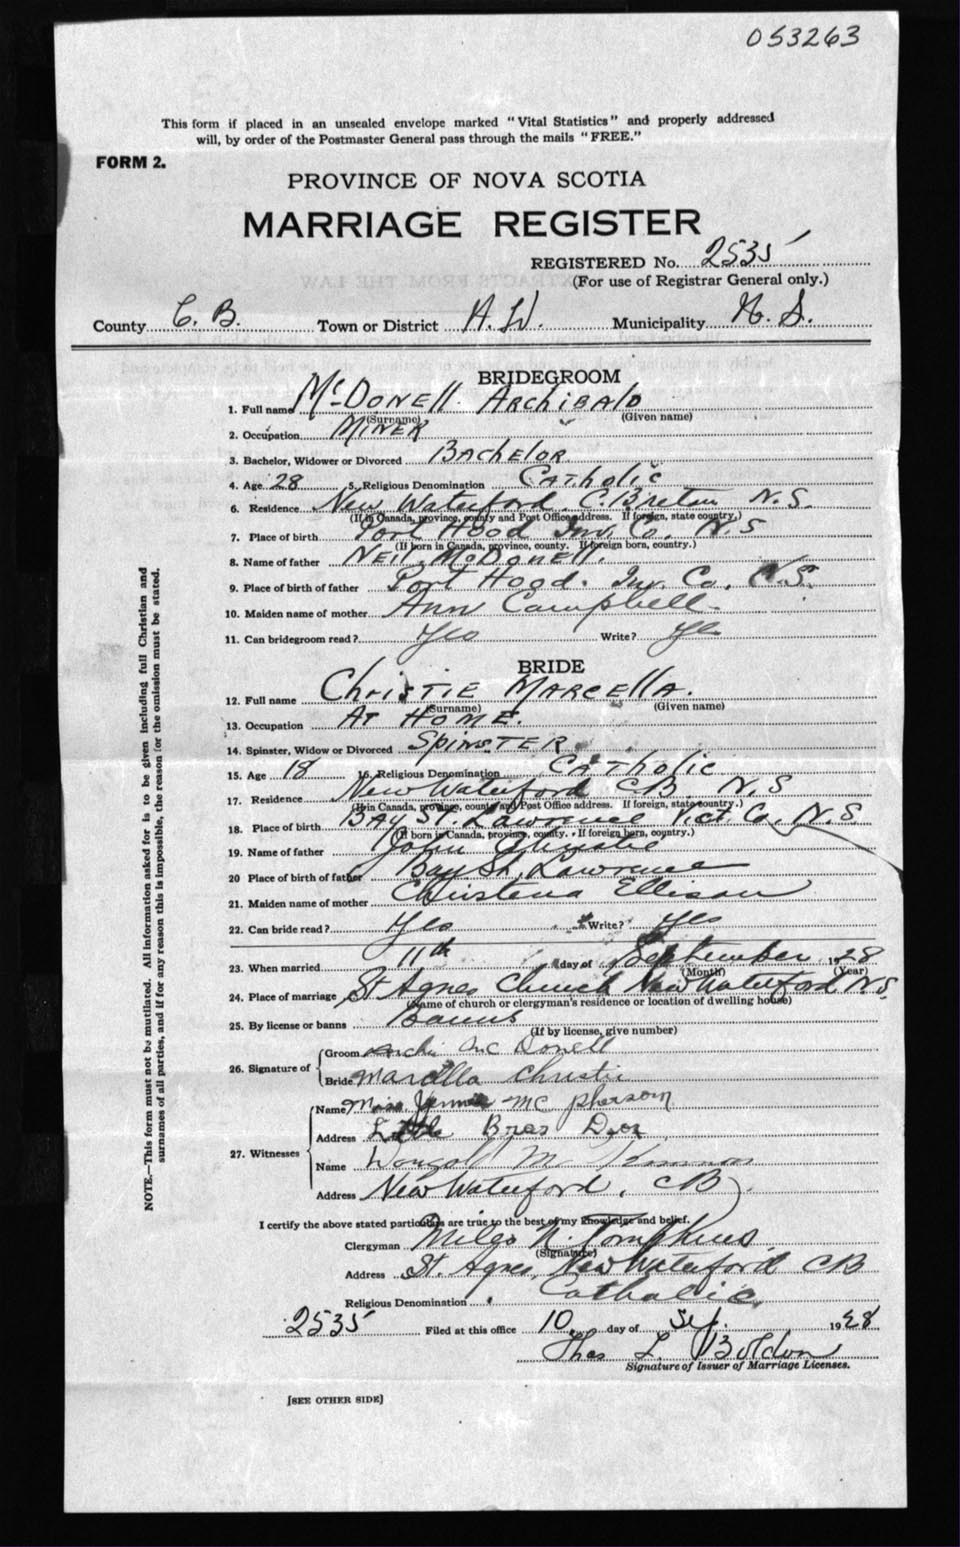 053263
This form if placed in an unsealed envelope marked "Vital Statistics" and properly addressed
will, by order of the Postmaster General pass through the mails "FREE."
FORM 2.
PROVINCE OF NOVA SCOTIA
MARRIAGE REGISTER
REGISTERED No. 2535
(For use of Registrar General only.)
County C. B. Town or District Municipality N. S.
BRIDEGROOM
1. Full name McDonell Archibald
(Surname) (Given name)
2. Occupation Miner
3. Bachelor, Widower or Divorced Bachelor
4. Age 28 5. Religious Denomination Catholic
6. Residence New Waterford C. Breton N.S.
(If in Canada, province, county and Post Office address. If foreign, state country.)
7. Place of birth Port Hood Inv. Co. N.S
(If born in Canada, province, county. If foreign born, country.)
8. Name of father Neil McDonell.
9. Place of birth of father Port Hood. Inv. Co. N.S.
10. Maiden name of mother Ann Campbell
11. Can bridegroom read? Yes Write? Yes
BRIDE
12. Full name Christie Marcella.
(Surname) (Given name)
13. Occupation At Home.
14. Spinster, Widow or Divorced Spinster
15. Age 18 16. Religious Denomination Catholic
17. Residence New Waterford CB. N.S
(If in Canada, province, county and Post Office address. If foreign, state country.)
18. Place of birth Bay St. Lawrence Vict. Co. N.S.
(If born in Canada, province, county. If foreign born, country.)
19. Name of father John Christie
20 Place of birth of father Bay St. Lawrence
21. Maiden name of mother Christena Ellison
22. Can bride read? Yes Write? Yes
23. When married 11th day of September 1928
(Month) (Year)
24. Place of marriage St Agnes Church New Waterford N.S.
(Name of church or clergyman's residence or location of dwelling house)
25. By license or banns Banns
(If by license, give number)
26. Signature of
Groom Archi Mc Donell
Bride Marcella Christie
27. Witnesses
Name Miss Mc pherson
Address Little Bras Dor
Name Mc
Address New Waterford, CB
I certify the above stated particulars are true to the best of my knowledge and belief.
Clergyman Miles N. Tompkins
(Signature)
Address St. Agnes, New Waterford CB
Religious Denomination Catholic
2535 Filed at this office 10 day of Sep. 1928
Thos L. Boldon
Signature of Issuer of Marriage Licenses.
[SEE OTHER SIDE]
NOTE.—This form must not be mutilated. All information asked for is to be given including full Christian and
surnames of all parties, and if for any reason this is impossible, the reason for the omission must be stated.